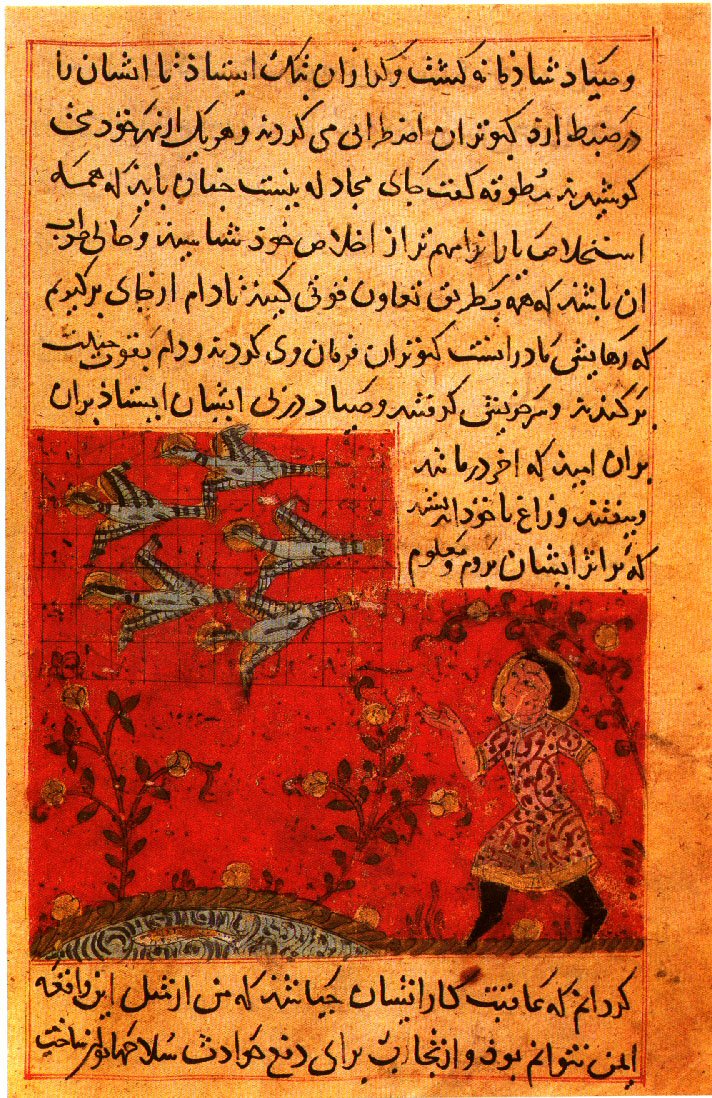 و صیاد شاذمانه کشت و کرازان بتک ایستاذ تا ایشان را
در ضبط آرد کبوتران اضطرابی می کردند و هریک از بهر خوذ می
کوشیدند مطوقه کفت جای مجادله نیست جنان بایذ که همه
استخلاص یاران را مهم تر از اخلاص خوذ شناسیذ و حالی صواب
ان باشذ که همه بطریق تعاون قوتی کنیذ تا دام از جای برکیریم
که رهایش ما در انست کبوتران فرمان وی کردند و دام بقوت
برکندند و سر خویش کرفتند و صیاد در پی ایشان ایستاذ بران
بران امیذ که اخر درمانند
وبیفتند و زاغ با خوذ اندیشیذ
که بر اثر ایشان بروم و معلوم
کردانم که عاقبت کار ایشان جه باشذ که من از مثل این واقعه
ایمن نتوانم بوذ و از تجارب برای دفع حوادث سلاحها توان ساخت